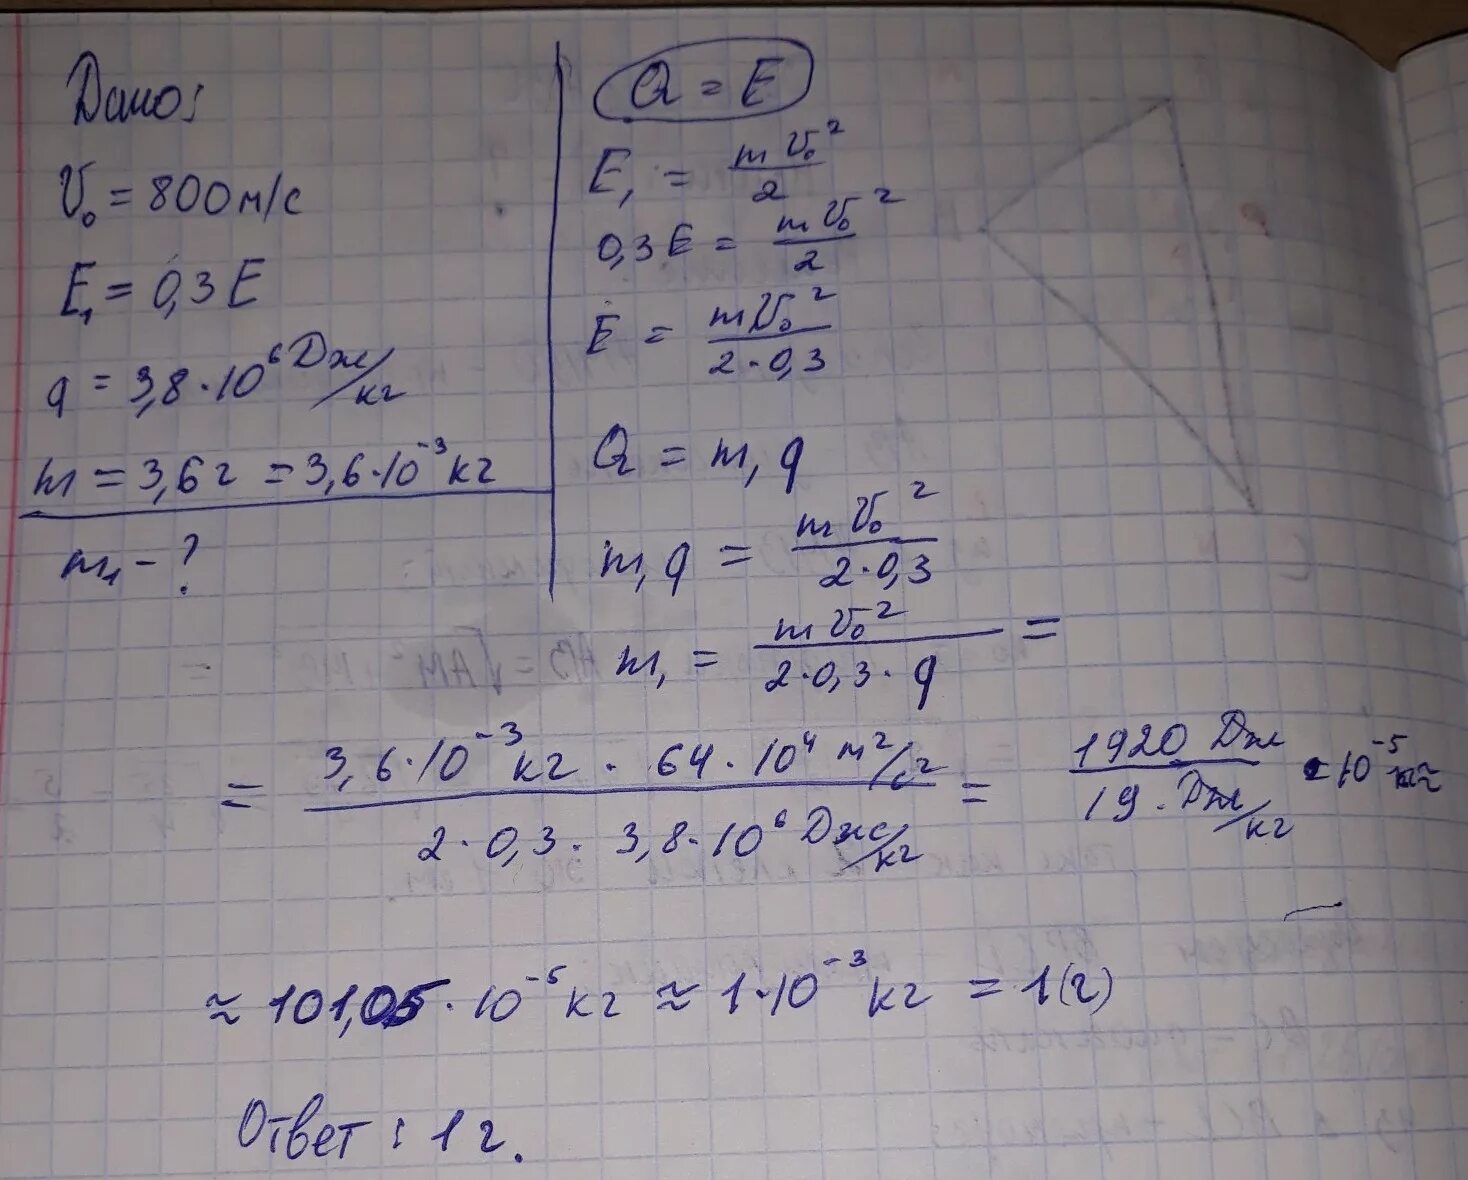 Дано:
V₀ = 800 м/с
E₁ = 0,3 E
q = 3,8 · 10⁶ Дж/кг
m = 3,6 г = 3,6 · 10⁻³ кг
m₁ - ?
Q = E
E₁ = mV₀²/2
0,3 E = mV₀²/2
E = mV₀²/(2 · 0,3)
Q = m₁q
m₁q = mV₀²/(2 · 0,3)
m₁ = mV₀²/(2 · 0,3 · q) =
= (3,6 · 10⁻³ кг · 64 · 10⁴ м²/с²)/(2 · 0,3 · 3,8 · 10⁶ Дж/кг) = (1920 Дж)/(19 · Дж/кг) · 10⁻⁵ кг
≈ 101,05 · 10⁻⁵ кг ≈ 1 · 10⁻³ кг = 1 (г)
Ответ: 1 г.